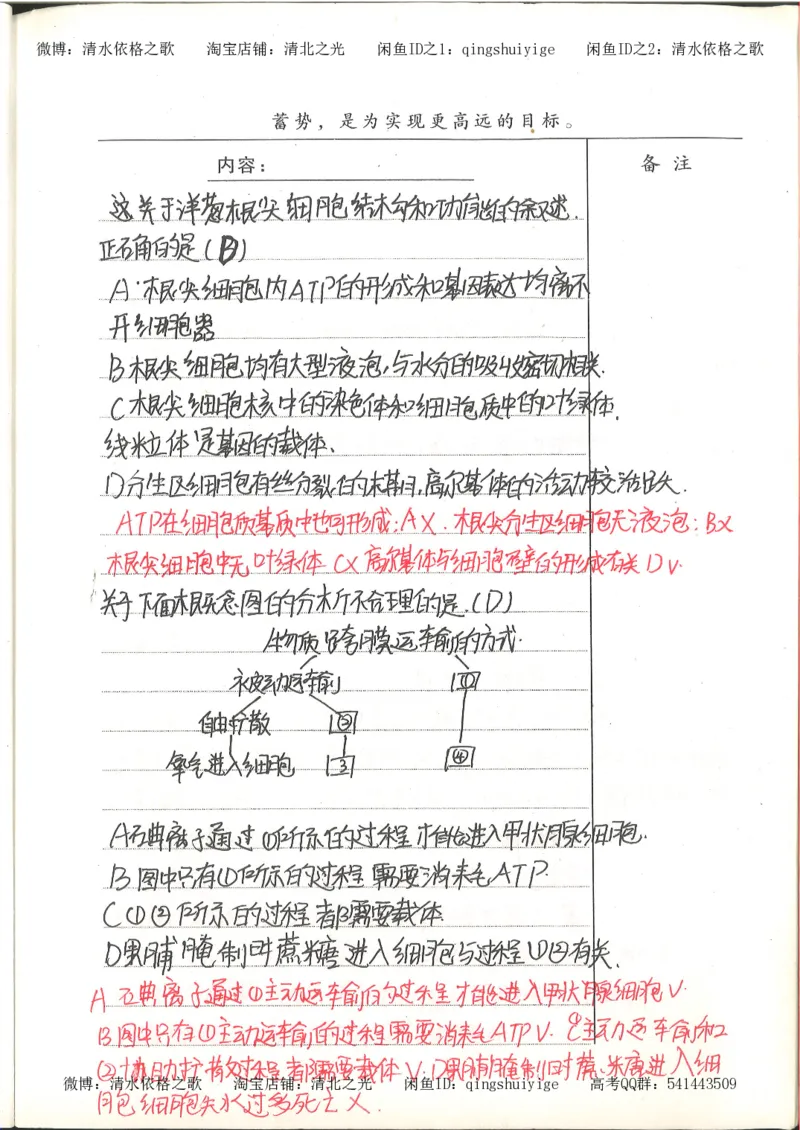 微博：清水依格之歌 淘宝店铺：清北之光 闲鱼ID之1：qingshuiyige 闲鱼ID之2：清水依格之歌
蓄势，是为实现更高远的目标。
内容： 备 注
这关于洋葱根尖细胞结构和功能的叙述，
正确的是（B）
A·根尖细胞内ATP的形成和基因表达均离不
开细胞器
B根尖细胞均有大型液泡，与水分的吸收密切相关．
C根尖细胞核中的染色体和细胞质中的叶绿体．
线粒立体是基因的载体．
D分生区细胞有丝分裂的末期，高尔基体的活动较活跃．
ATP在细胞质基质中也可形成；A×．根尖分生区细胞无液泡：B×
根尖细胞中无叶绿体 C× 高尔基体与细胞壁的形成有关 D√．
关于下面概念图的分析不合理的是．（D）
物质跨膜运输的方式
被动运输 ①
自由扩散 ②
氧气进入细胞 3 ④
A碘离子通过①所示的过程才能进入甲状腺细胞．
B图中只有①所示的过程需要消耗ATP．
C①②所示的过程都需要载体
D果脯腌制时蔗糖进入细胞与过程①②有关．
A 碘离子通过①主动运输的过程才能进入甲状腺细胞√．
B图中只有①主动运输的过程需要消耗ATP√．C主动运输和
②协助扩散过程都需要载体√．D果脯腌制时蔗糖进入细
微博：清水依格之歌 淘宝店铺：清北之光 闲鱼ID：qingshuiyige 高考QQ群：541443509
胞细胞失水过多死亡×．